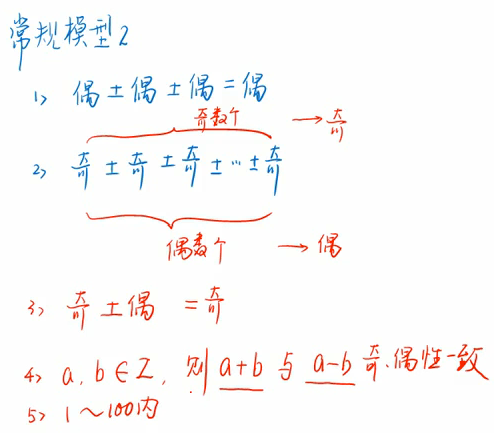 常规模型2
1> 偶±偶±偶=偶
奇数个 → 奇
2> 奇±奇±奇±…±奇
偶数个 → 偶
3> 奇±偶 =奇
4> a, b∈Z, 则 a+b 与 a-b 奇.偶性一致
5> 1~100内